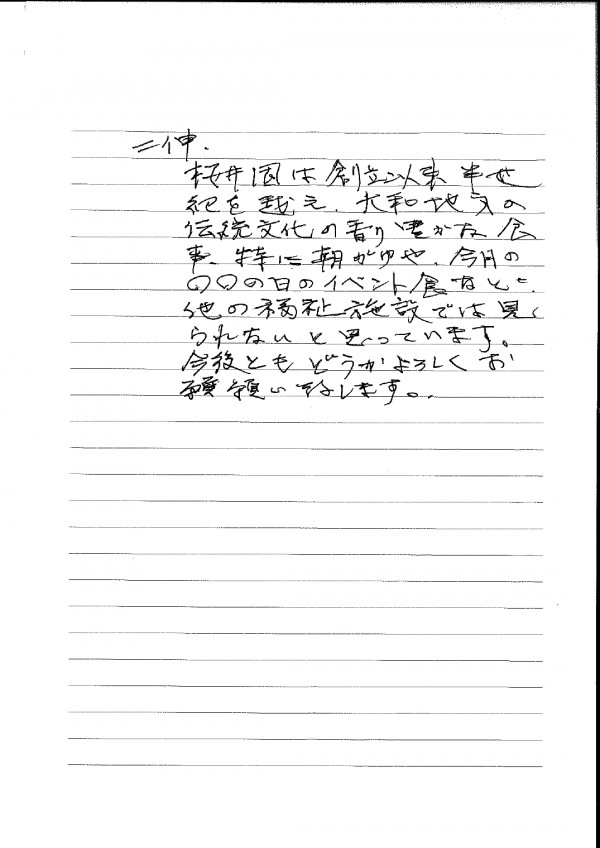 二伸.
桜井園は創立以来半世
紀を越え、大和地方の
伝統文化の香り豊かな食
事、特に朝がゆや、今月の
〇〇の日のイベント食など、
他の福祉施設では見
られないと思っています。
今後ともどうかよろしくお
願願い致します。